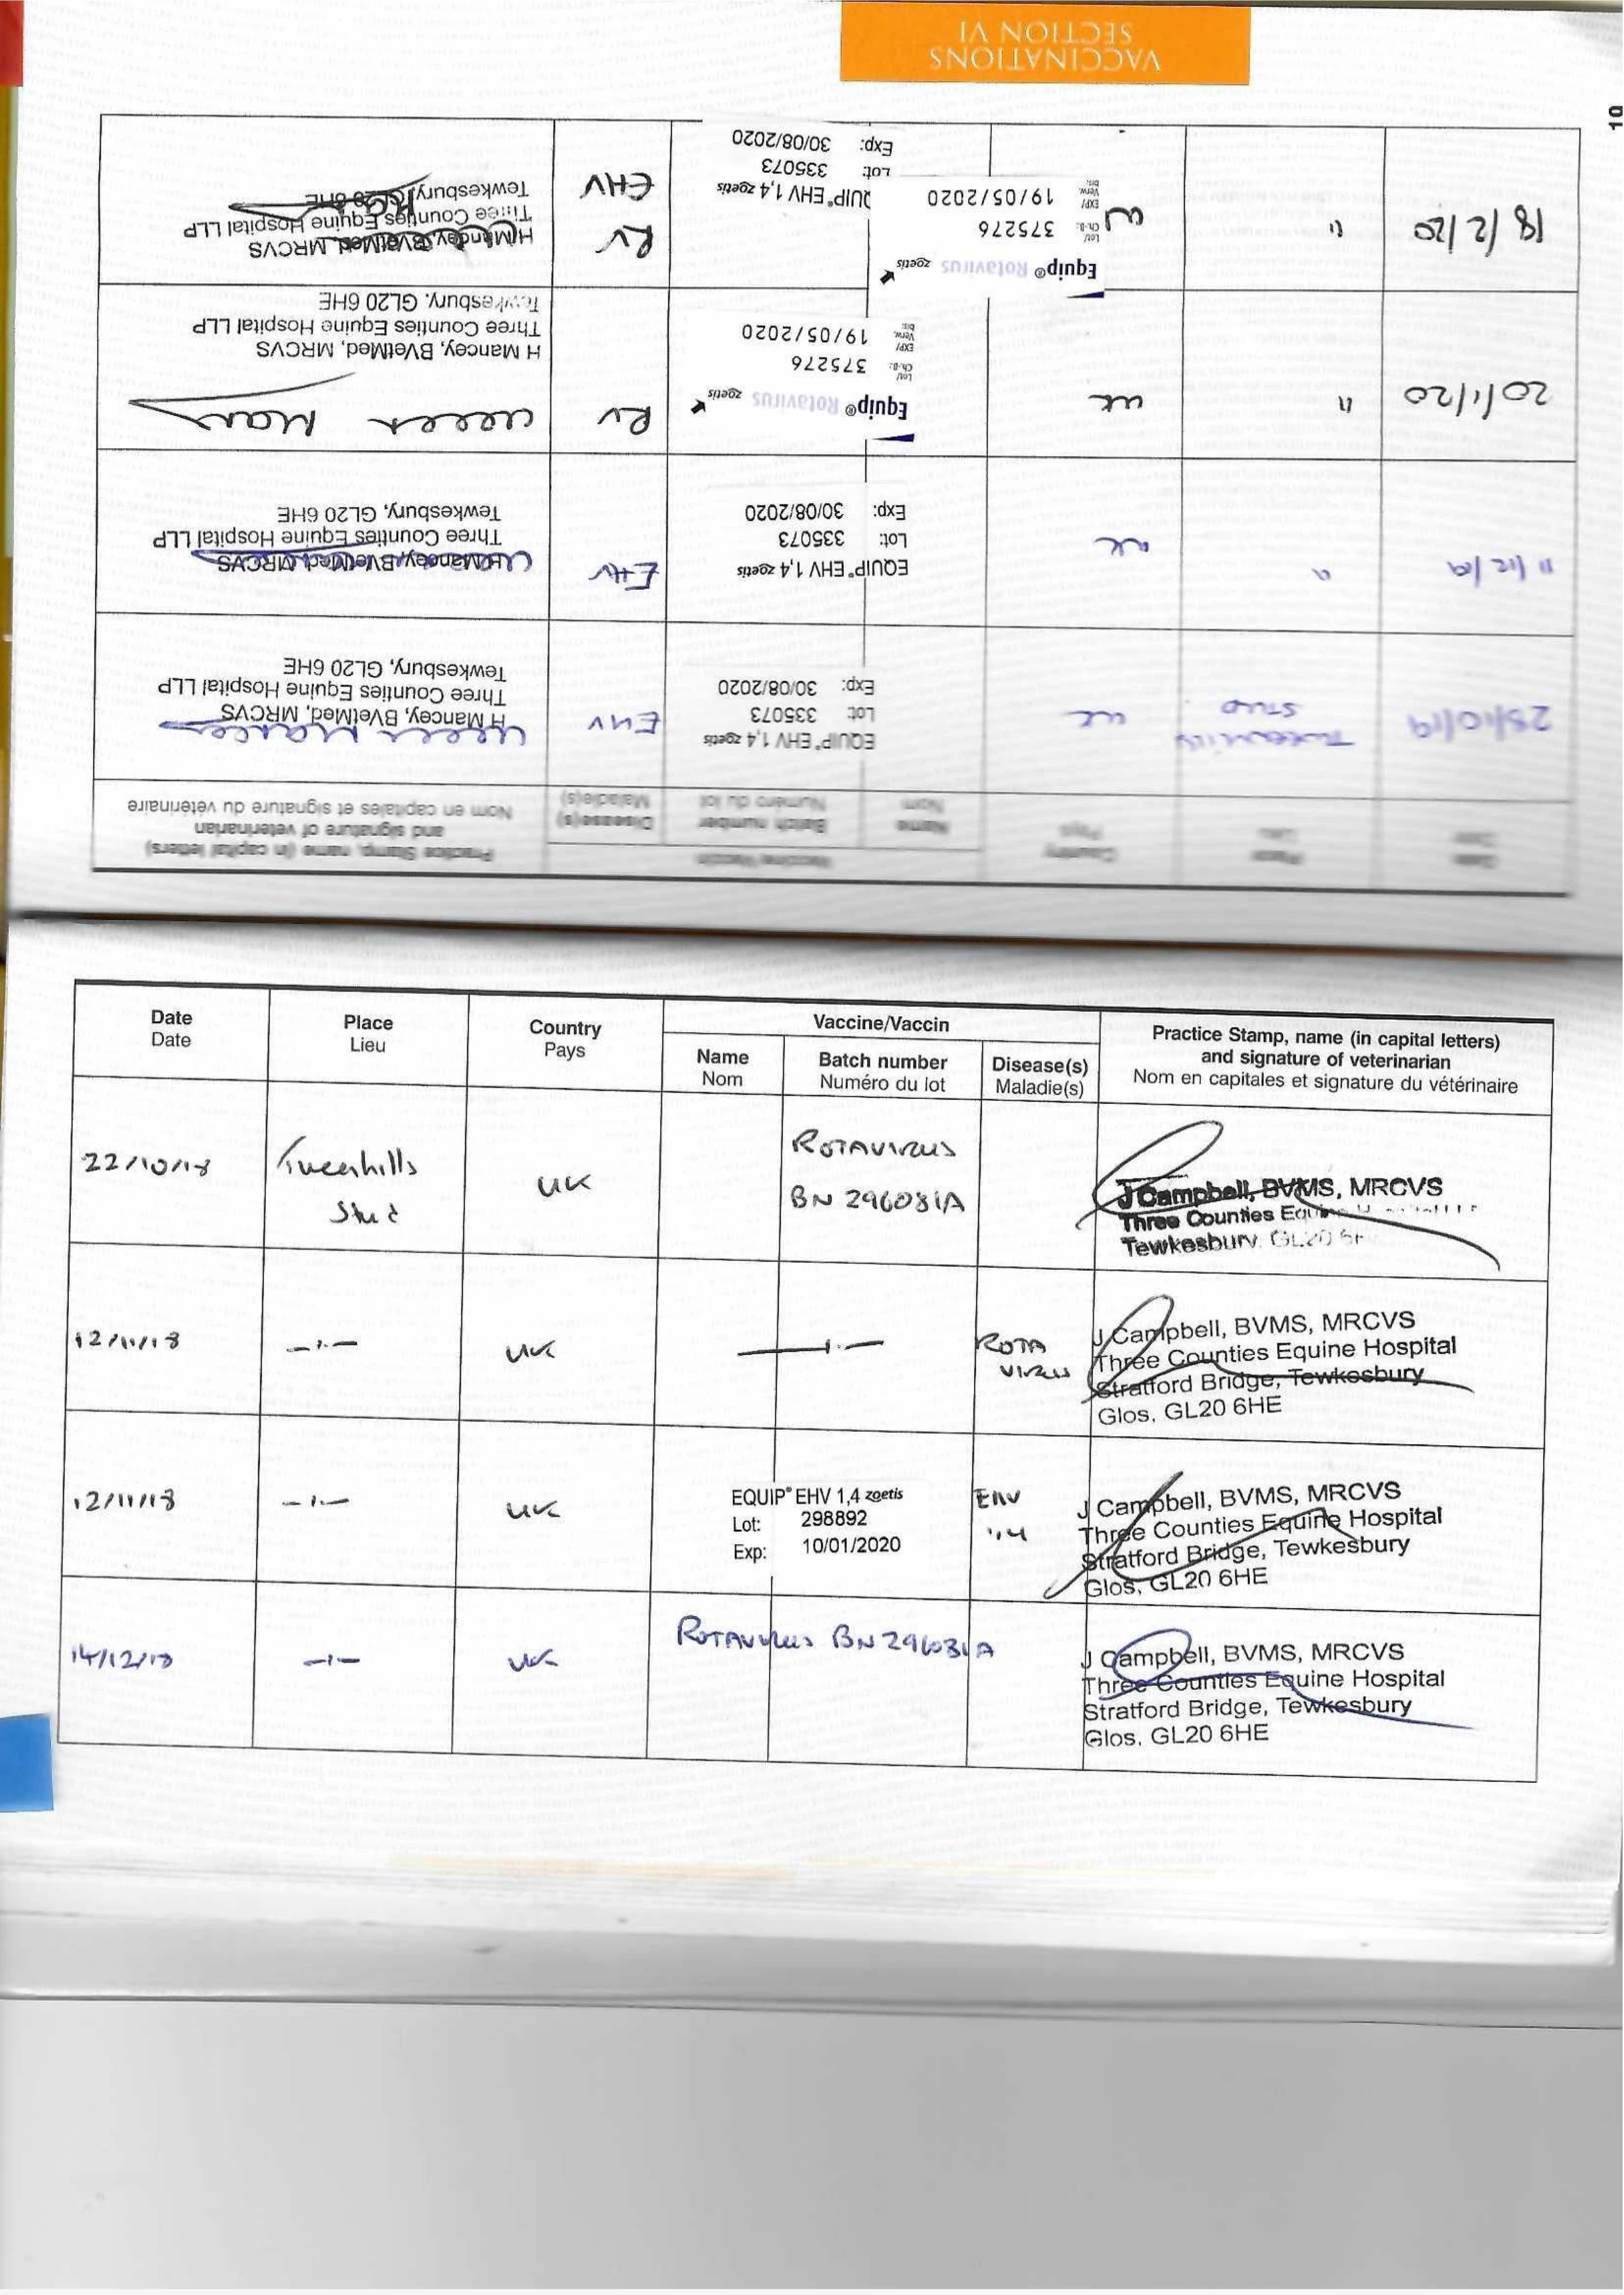 VACCINATIONS
SECTION VI
10
Date
Place
Country
Vaccine/Vaccin
Practice Stamp, name (in capital letters)
and signature of veterinarian
Nom en capitales et signature du vétérinaire
Date
Lieu
Pays
Name
Nom
Batch number
Numéro du lot
Disease(s)
Maladie(s)
23/10/19
Tweenhills
STUD
UK
EQUIP® EHV 1,4 zoetis
Lot: 335073
Exp: 30/08/2020
EHV
H Mancey, BVetMed, MRCVS
Three Counties Equine Hospital LLP
Tewkesbury, GL20 6HE
11/12/19
"
UK
EQUIP® EHV 1,4 zoetis
Lot: 335073
Exp: 30/08/2020
EHV
H Mancey, BVetMed, MRCVS
Three Counties Equine Hospital LLP
Tewkesbury, GL20 6HE
20/1/20
"
UK
Equip® Rotavirus zoetis
Lot/
Ch.-B.: 375276
EXP/
Verw.
bis: 19/05/2020
RV
H Mancey, BVetMed, MRCVS
Three Counties Equine Hospital LLP
Tewkesbury, GL20 6HE
18/2/20
"
Equip® Rotavirus zoetis
Lot/
Ch.-B.: 375276
EXP/
Verw.
bis: 19/05/2020
QUIP® EHV 1,4 zoetis
Lot: 335073
Exp: 30/08/2020
RV
EHV
H Mancey, BVetMed, MRCVS
Three Counties Equine Hospital LLP
Tewkesbury, GL20 6HE
Date
Date
Place
Lieu
Country
Pays
Vaccine/Vaccin
Name
Nom
Batch number
Numéro du lot
Disease(s)
Maladie(s)
Practice Stamp, name (in capital letters)
and signature of veterinarian
Nom en capitales et signature du vétérinaire
22/10/18
Tweenhills
Stud
UK
ROTAVIRUS
BN 296081A
J Campbell, BVMS, MRCVS
Three Counties Equine
Tewkesbury, GL20 6H
12/11/18
—"—
UK
—"—
ROTA
VIRUS
J Campbell, BVMS, MRCVS
Three Counties Equine Hospital
Stratford Bridge, Tewkesbury
Glos. GL20 6HE
12/11/18
—"—
UK
EQUIP® EHV 1,4 zoetis
Lot: 298892
Exp: 10/01/2020
EHV
1,4
J Campbell, BVMS, MRCVS
Three Counties Equine Hospital
Stratford Bridge, Tewkesbury
Glos. GL20 6HE
14/12/18
—"—
UK
ROTAVIRUS BN 296081A
J Campbell, BVMS, MRCVS
Three Counties Equine Hospital
Stratford Bridge, Tewkesbury
Glos. GL20 6HE